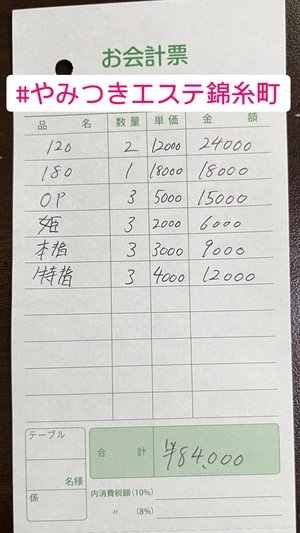 お会計票
#やみつきエステ錦糸町
品 名 数量 単価 金 額
120 2 12000 24000
180 1 18000 18000
OP 3 5000 15000
姫 3 2000 6000
本指 3 3000 9000
特指 3 4000 12000
テーブル
名様
係
合 計 ¥84,000
内消費税額(10%)
〃 (8%)